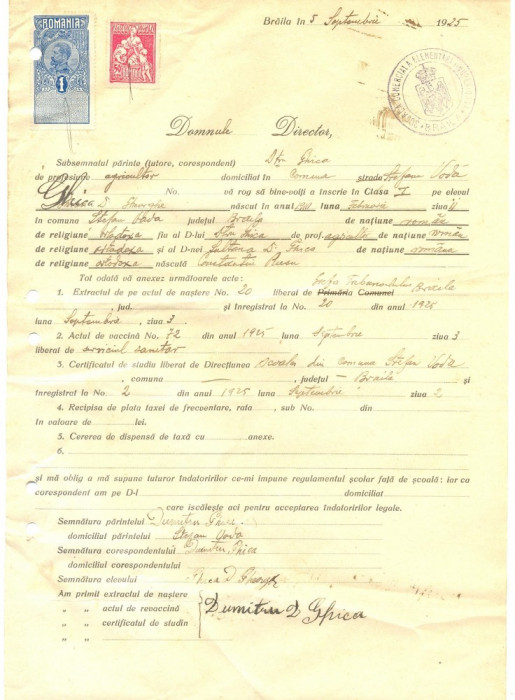 Brăila în 5 Septembrie 1925
ROMANIA
1
BRĂILA
Domnule Director,
Subsemnatul părinte (tutore, corespondent) Dtru Ghica
de profesiune agricultor domiciliat în comuna strada Stefan Vodă
No. vă rog să bine-voiți a înscrie în Clasa I pe elevul
Ghica D. născut în anul luna ziua
în comuna Ștefan Vodă județul Braila de națiune română
de religiune ortodoxa fiu al D-lui Dtru Ghica de prof. agricultor de națiune română
de religiune ortodoxa și al D-nei D. Ghica de națiune română
de religiune ortodoxa născută Constantin Rusu
Tot odată vă anexez următoarele acte:
Grefa Tribunalului Braila
1. Extractul de pe actul de naștere No. 20 liberat de Primăria Comunei
, jud. și înregistrat la No. 20 din anul 1925
luna Septembrie , ziua 3.
2. Actul de vaccină No. 72 din anul 1925 luna Septembrie ziua 3
liberat de serviciul sanitar
3. Certificatul de studiu liberat de Direcțiunea scoalei din comuna Stefan Vodă
, comuna — , județul — Brăila și
înregistrat la No. 2 din anul 1925 luna Septembrie ziua 2
4. Recipisa de plata taxei de frecuentare, rata , sub No. din
în valoare de lei.
5. Cererea de dispensă de taxă cu anexe.
6.
și mă oblig a mă supune tuturor îndatoririlor ce-mi impune regulamentul școlar față de școală: iar ca
corespondent am pe D-l domiciliat
care iscălește aci pentru acceptarea îndatoririlor legale.
Semnătura părintelui Dumitru Ghica.
domiciliul părintelui Stefan Voda
Semnătura corespondentului Dumitru Ghica
domiciliul corespondentului
Semnătura elevului Ghica D
Am primit extractul de naștere
„ „ actul de revaccină
Dumitru D Ghica
„ „ certificatul de studiu
„ „